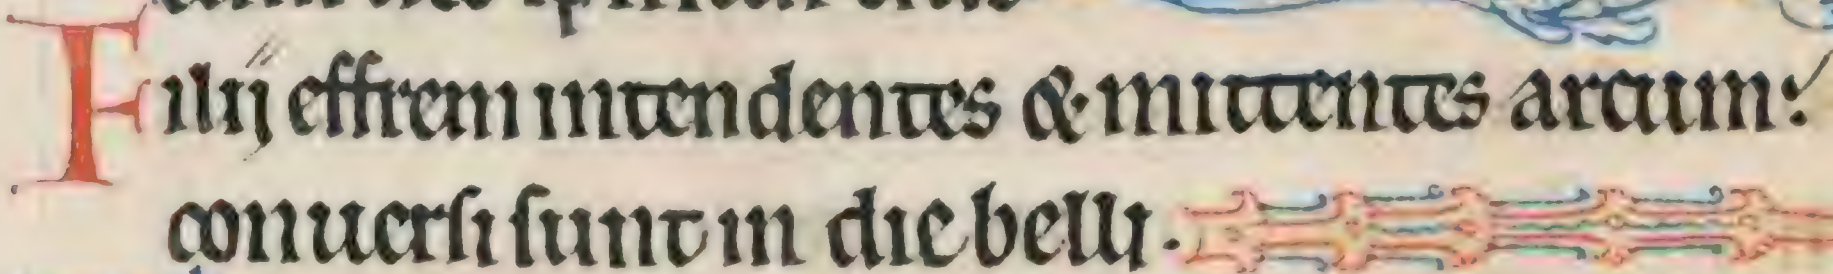 Filij effrem intendentes & mittentes arcum:
conuersi sunt in die belli.